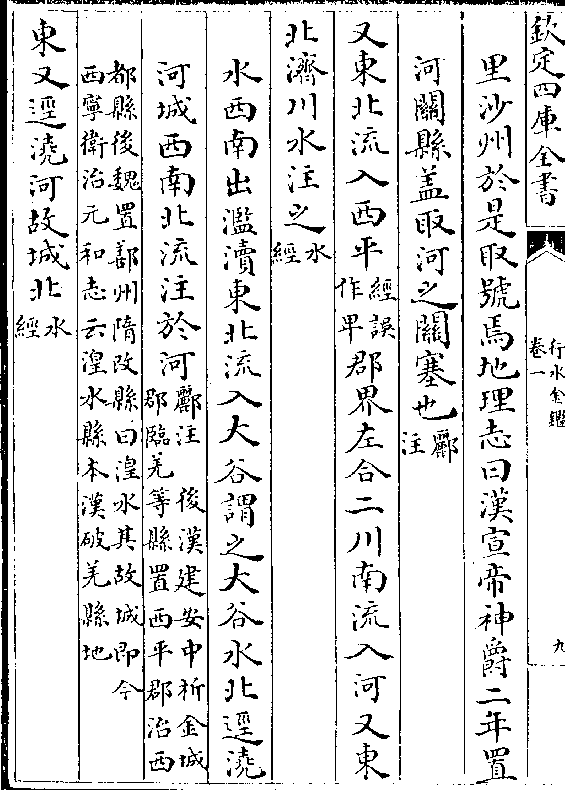 欽定四庫全書
行水金鑑
卷一
九
里沙州於是取號焉地理志曰漢宣帝神爵二年置
河關縣蓋取河之關塞也酈注
又東北流入西平經誤作畢郡界左合二川南流入河又東
北濟川水注之水經
水西南出濫瀆東北流入大谷謂之大谷水北逕澆
河城西南北流注於河酈注 後漢建安中析金城郡臨羌等縣置西平郡治西
都縣後魏置鄯州隋改縣曰湟水其故城即今西寧衛治元和志云湟水縣本漢破羌縣地
東又逕澆河故城北水經